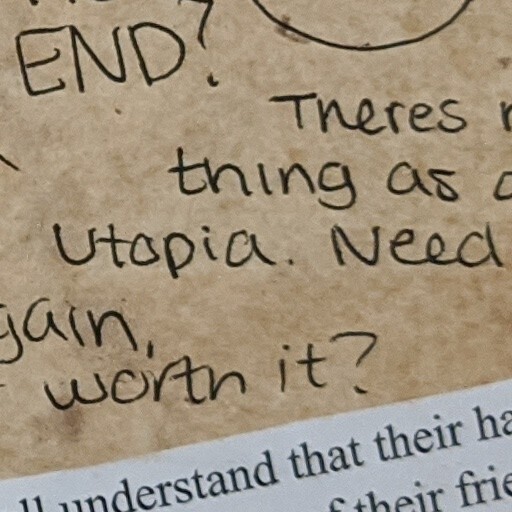 END?
Theres
thing as
Utopia. Need
gain,
worth it?
understand that their
their